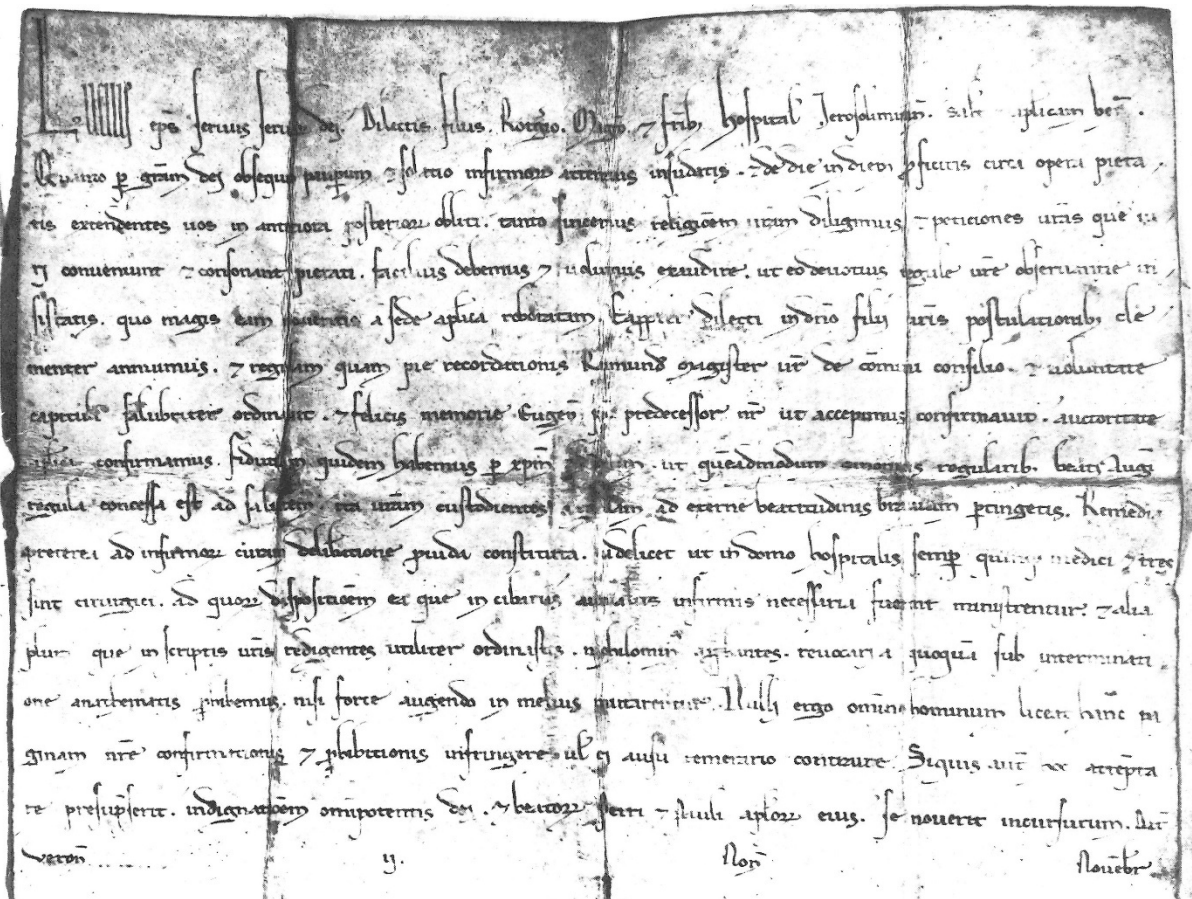 Lucius eps servus servorum dei. Dilectis filiis. Rogerio. Magro. ⁊ frib; hospital Jerosolimitan. salt ⁊ aplicam ben.
Quanto p gram dei obsequiis paupum ⁊ solatio infirmor attentius insudatis. ⁊ de die in diem pficitis circa opera pieta
tis extendentes vos in anteriora posterior obliti. tanto sincerius religioem vram diligimus ⁊ peticiones vras que iu
ri conveniunt ⁊ consonant pietati. facilius debemus ⁊ volumus exaudire. ut eo devotius regule vre observantie in
sistatis. quo magis eam noveritis a sede aplica roboratam. Eapprter dilecti in dno filii vris postulationib; cle
menter annuimus. ⁊ regulam quam pie recordationis Raimund magister vr de comuni consilio. ⁊ voluntate
capituli salubriter ordinavit. ⁊ felicis memorie Eugeni pp predecessor nr ut accepimus confirmavit. auctoritate
aplica confirmamus. fiduciam quidem habemus p xpm ut queadmodum regularib. beati Augi
regula concessa est ad salutem ita vram custodientes ad eterne beatitudinis bravium ptingetis. Remedi.
preterea ad infirmor curam deliberatione pvida constituta. videlicet ut in domo hospitalis semp quinq medici ⁊ tres
sint cirurgici. ad quor dispositioem ea que in cibariis infirmis necessaria fuerint ministrentur. ⁊ alia
plura que in scriptis vris redigentes utiliter ordinastis. nichilomin revocari a quoqua sub interminati
one anathematis phibemus. nisi forte augendo in melius mutarentur. Nulli ergo omino hominum liceat hanc pa
ginam nre confirmationis ⁊ phibitionis infringere vl ei ausu temerario contraire. Siquis aut attempta
re presupserit. indignatioem omipotentis dei. ⁊ beator Petri ⁊ Pauli aplor eius. se noverit incursurum. Dat
veron ii. Non Novebr